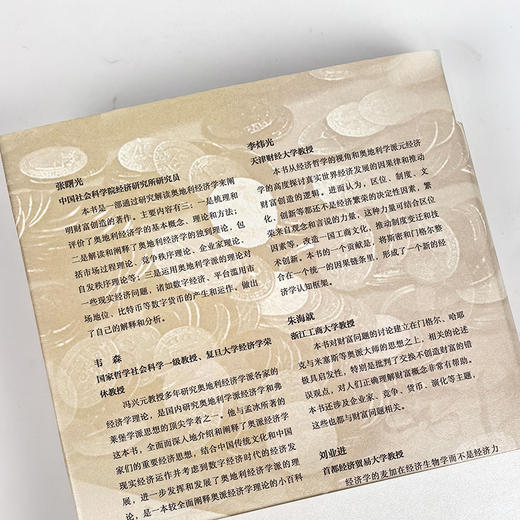 张曙光
中国社会科学院经济研究所研究员
本书是一部通过研究解读奥地利经济学来阐
明财富创造的著作。主要内容有三：一是梳理和
评价了奥地利经济学的基本概念、理论和方法；
二是解读和阐释了奥地利经济学的独到理论，包
括市场过程理论、竞争秩序理论、企业家理论、
自发秩序理论等；三是运用奥地利学派的理论对
一些现实经济问题，诸如数字经济、平台滥用市
场地位、比特币等数字货币的产生和运作，做出
了自己的解释和分析。
韦 森
国家哲学社会科学一级教授、复旦大学经济学荣
休教授
冯兴元教授多年研究奥地利经济学派各家的
经济学理论，是国内研究奥地利学派经济学和弗
莱堡学派思想的顶尖学者之一。他与孟冰所著的
这本书，全面而深入地介绍和阐释了奥派经济学
家们的重要经济思想，结合中国传统文化和中国
现实经济运作并考虑到数字经济时代的经济发
展，进一步发挥和发展了奥地利经济学派的理
论，是一本较全面阐释奥派经济学理论的小百科
李炜光
天津财经大学教授
本书从经济哲学的视角和奥地利学派元经济
学的高度探讨真实世界经济发展的因果律和推动
财富创造的逻辑。进而认为，区位、制度、文
化、创新等都还不是经济繁荣的决定性因素，繁
荣来自观念和言说的力量。这种力量可结合区位
因素等，改造一国工商文化，推动制度变迁和技
术创新。本书的一个贡献是，将斯密和门格尔整
合在一个统一的因果链条里，形成了一个新的经
济学认知框架。
朱海就
浙江工商大学教授
本书对财富问题的讨论建立在门格尔、哈耶
克与米塞斯等奥派大师的思想之上，相关的论述
极具启发性，特别是批判了交换不创造财富的错
误观点，对人们正确理解财富概念非常有帮助。
本书还涉及企业家、竞争、货币、演化等主题，
这些也都与财富问题相关。
刘业进
首都经济贸易大学教授
经济学的麦加在经济生物学而不是经济力